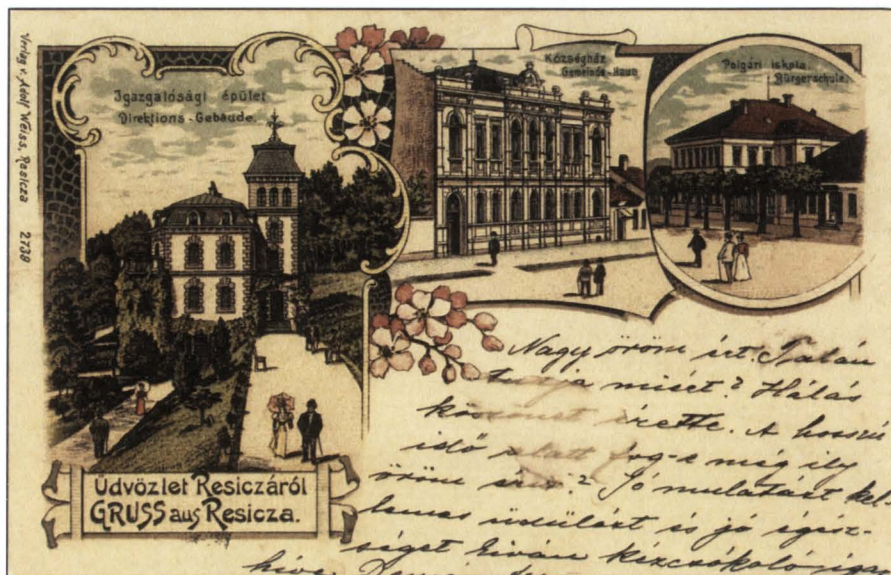 Verlag v. Adolf Weiss, Resicza 2738
Igazgatósági épület
Direktions-Gebäude.
Községház
Gemeinde-Haus
Polgári iskola.
Bürgerschule.
Üdvözlet Resiczáról
GRUSS aus Resicza.
Nagy öröm ért. Talán
tudja miért? Hálás
köszönet érette. A hosszú
idő alatt fog-e még ily
öröm érni? Jó mulatást kel-
lemes üdülést és jó egész-
séget kíván kézcsókoló igaz
híve